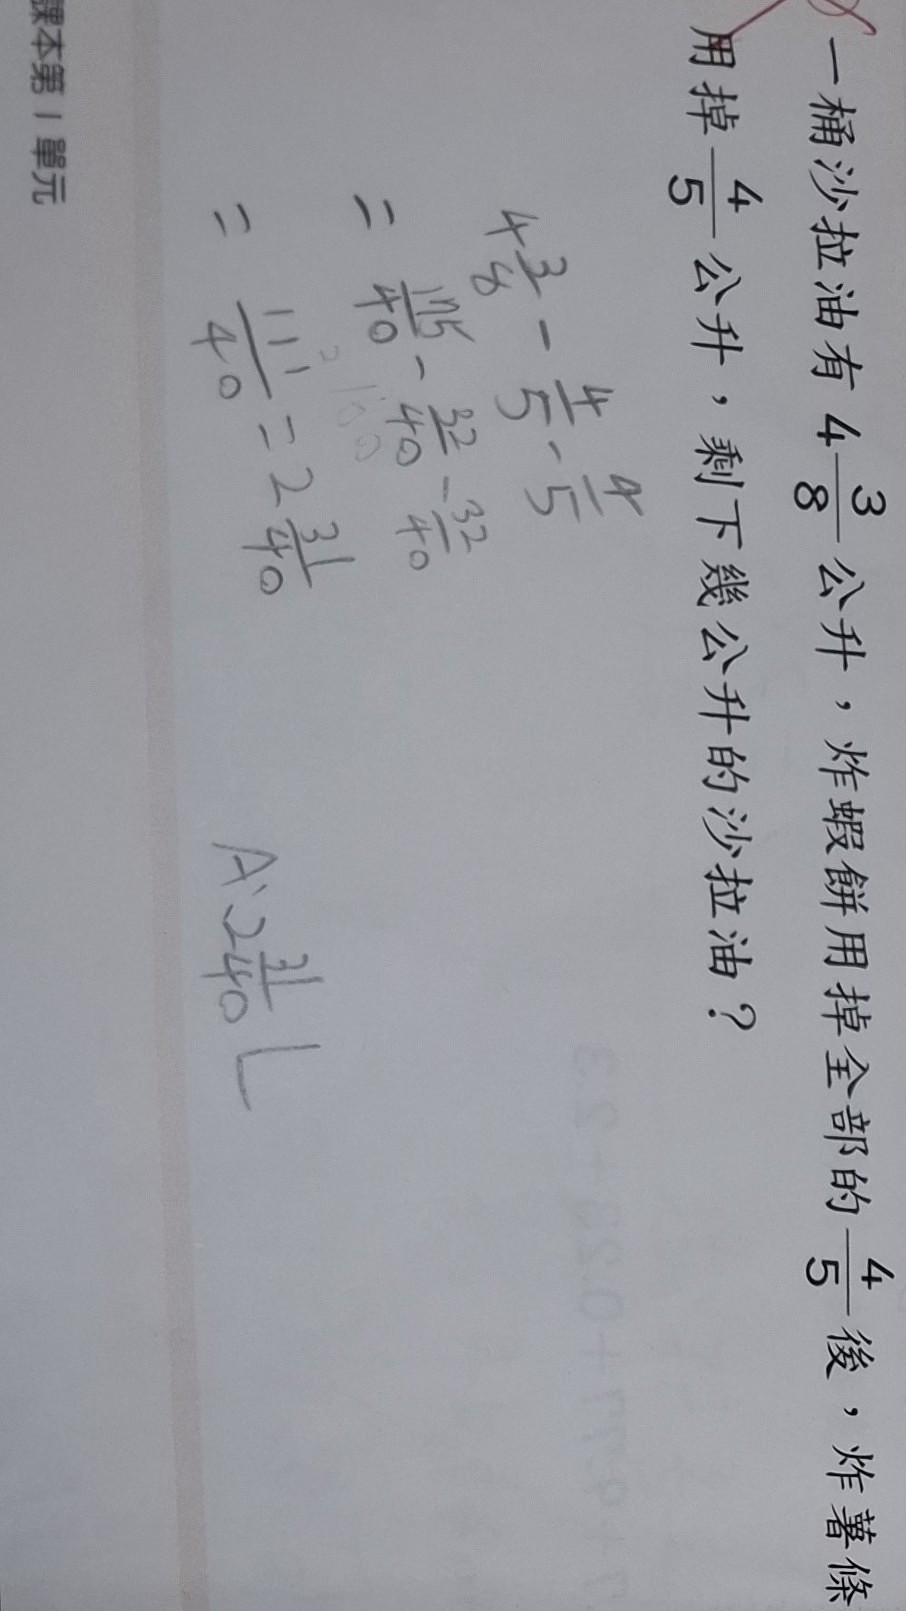 一桶沙拉油有 4 3/8 公升，炸蝦餅用掉全部的 4/5 後，炸薯條
用掉 4/5 公升，剩下幾公升的沙拉油？
4 3/8 - 4/5 - 4/5
= 175/40 - 32/40 - 32/40
= 111/40 = 2 31/40
A: 2 31/40 L
課本第1單元